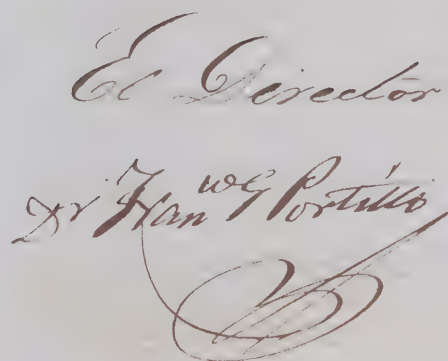 El Director
Dr Fran.co G Portillo